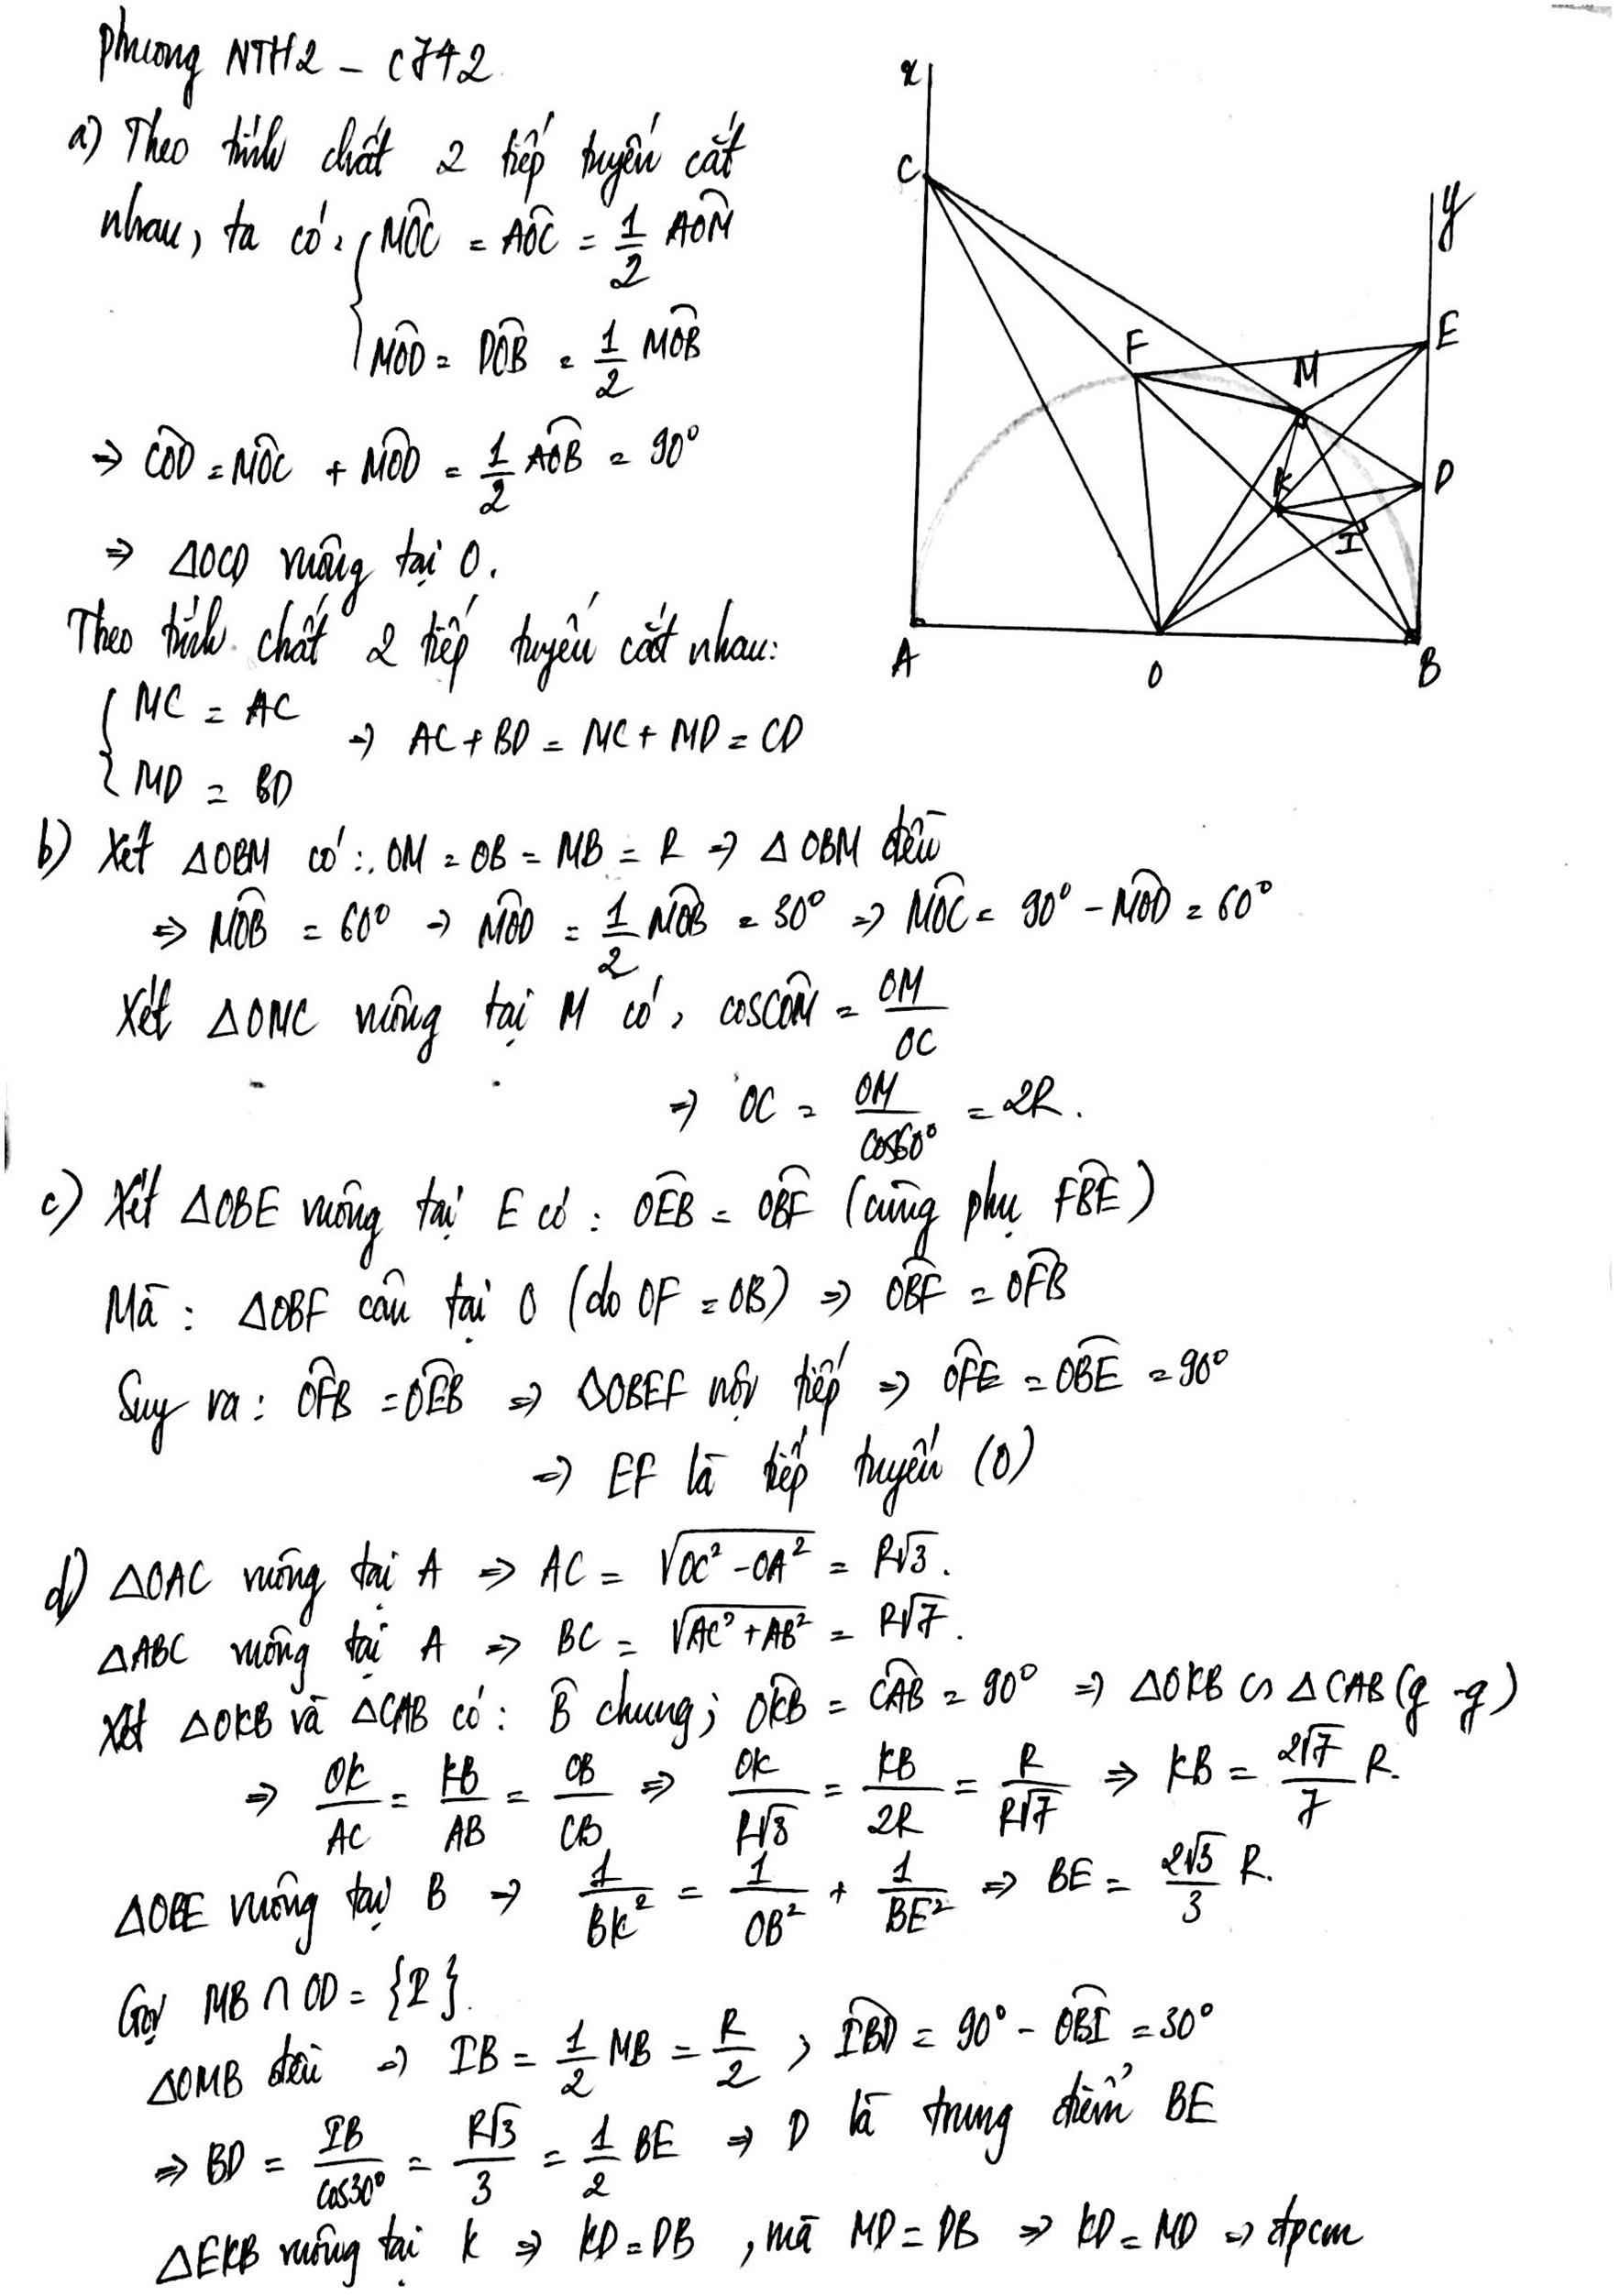 Phương NTH2 - C742
a) Theo tính chất 2 tiếp tuyến cắt
nhau, ta có: { MÔC = AÔC = 1/2 AÔM
MÔD = DÔB = 1/2 MÔB
⇒ CÔD = MÔC + MÔD = 1/2 AÔB = 90°
⇒ ΔOCD vuông tại O.
Theo tính chất 2 tiếp tuyến cắt nhau:
{ MC = AC
MD = BD
⇒ AC + BD = MC + MD = CD
b) Xét ΔOBM có: OM = OB = MB = R ⇒ ΔOBM đều
⇒ MÔB = 60° ⇒ MÔD = 1/2 MÔB = 30° ⇒ MÔC = 90° - MÔD = 60°
Xét ΔOMC vuông tại M có, cosCÔM = OM/OC
⇒ OC = OM/cos60° = 2R.
c) Xét ΔOBE vuông tại E có: OÊB = OB̂F (cùng phụ FB̂E)
Mà: ΔOBF cân tại O (do OF = OB) ⇒ OB̂F = OF̂B
Suy ra: OF̂B = OÊB ⇒ ΔOBEF nội tiếp ⇒ OF̂E = OB̂E = 90°
⇒ EF là tiếp tuyến (O)
d) ΔOAC vuông tại A ⇒ AC = √(OC² - OA²) = R√3.
ΔABC vuông tại A ⇒ BC = √(AC² + AB²) = R√7.
Xét ΔOKB và ΔCAB có: B̂ chung; OK̂B = CÂB = 90° ⇒ ΔOKB ∽ ΔCAB (g-g)
⇒ OK/AC = KB/AB = OB/CB ⇒ OK/R√3 = KB/2R = R/R√7 ⇒ KB = 2√7/7 R.
ΔOBE vuông tại B ⇒ 1/BK² = 1/OB² + 1/BE² ⇒ BE = 2√3/3 R.
Gọi MB ∩ OD = {I}.
ΔOMB đều ⇒ IB = 1/2 MB = R/2, IB̂D = 90° - OB̂I = 30°
⇒ BD = IB/cos30° = R√3/3 = 1/2 BE ⇒ D là trung điểm BE
ΔEKB vuông tại K ⇒ KD = DB, mà MD = DB ⇒ KD = MD ⇒ đpcm
x
C
y
F
E
M
K
D
I
A
O
B